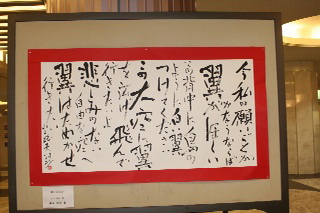 今私の願いごとが
かなうならば
翼がほしい
この背中に鳥の
ように白い翼
つけてください
この大空に翼
を広げ飛んで
行きたいよ
悲しみのない
自由な空へ
翼はためかせ
行きたい